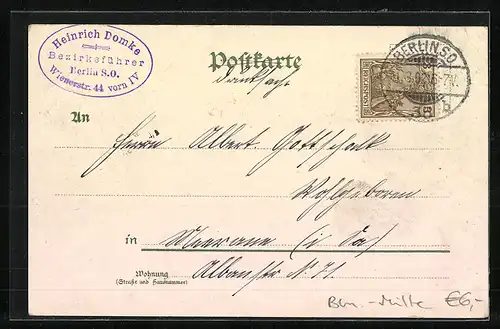 Heinrich Domke
Bezirksführer
Berlin S.O.
Wienerstr. 44 vorn IV
Postkarte
Drucksache
BERLIN SO
36
b
An
Herrn Albert Gottschalk
Wohlgeboren
in Meerane (i Sa)
Wohnung
(Straße und Hausnummer)
Albanstr N. 71.
Bln.-Mitte €6,-